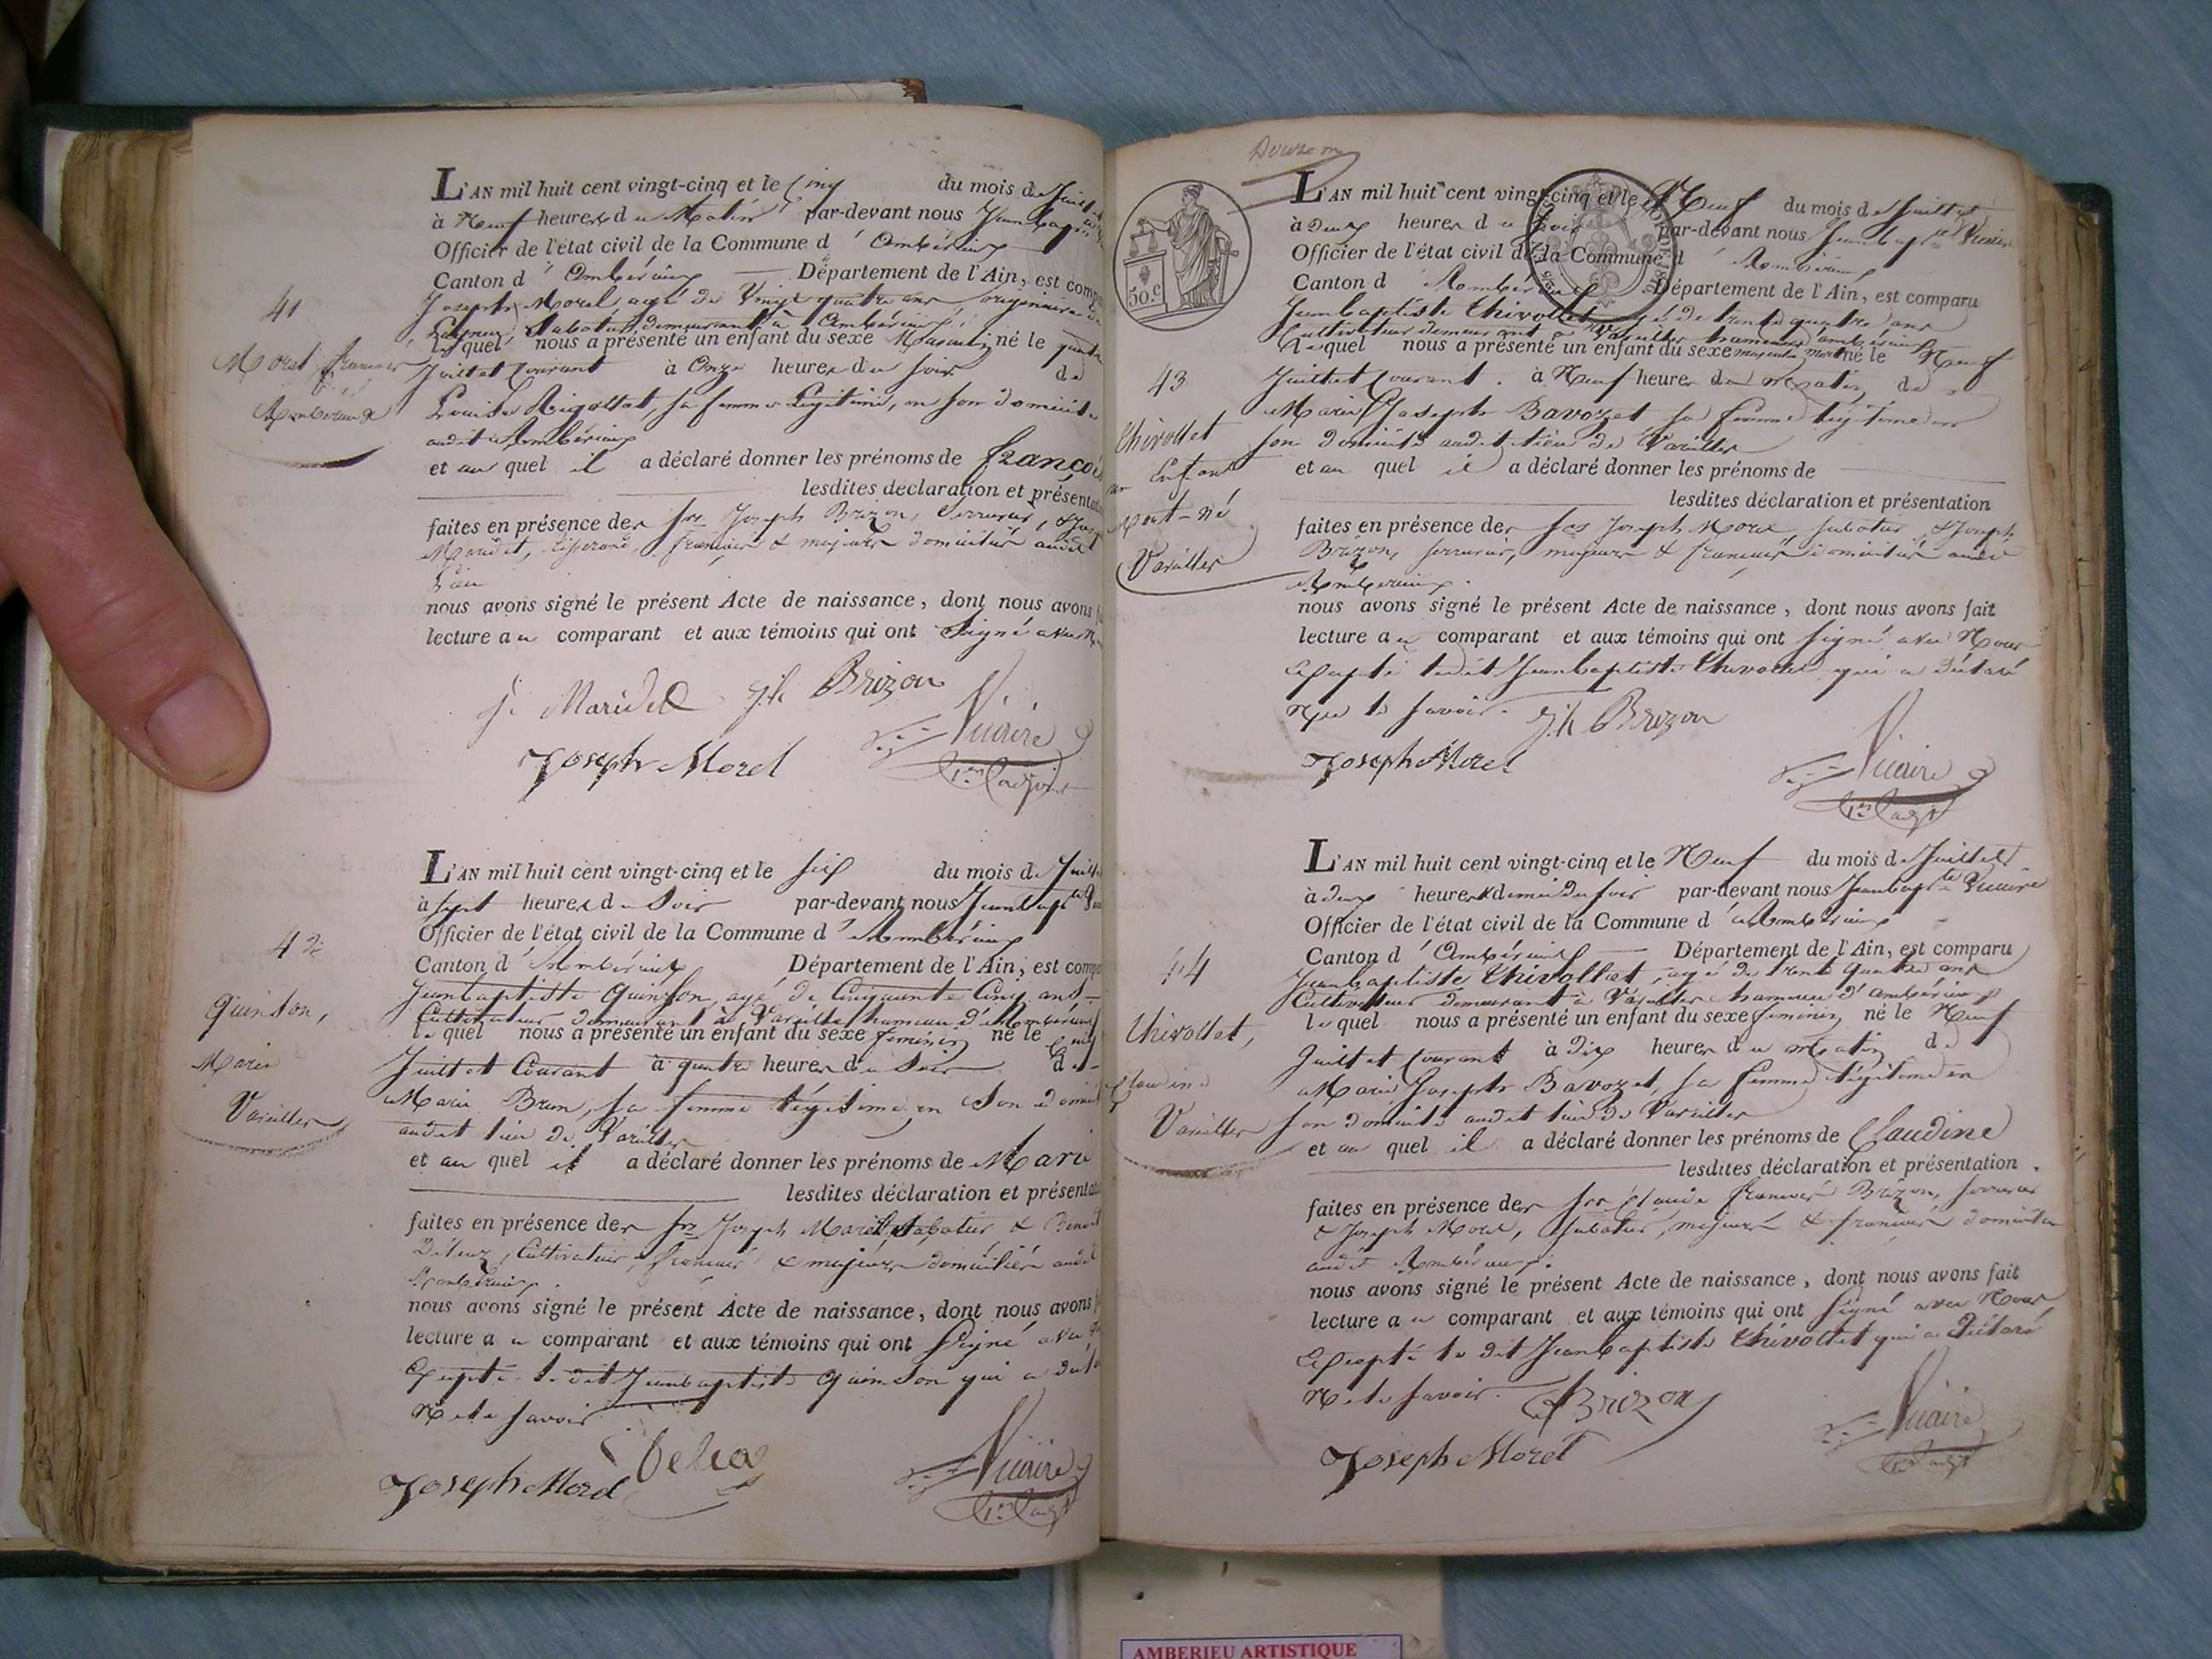 41
Morel françois
Ambérieux
L'AN mil huit cent vingt-cinq et le Cinq du mois de Juillet
à Neuf heures du Matin par-devant nous Jeanbaptiste
Officier de l'état civil de la Commune d' Ambérieux
Canton d' Ambérieux Département de l'Ain, est comp
Joseph Morel agé de Vingt quatre ans originaire de
Sabotier demeurant à Ambérieux
lequel nous a présenté un enfant du sexe Masculin né le quatre
Juillet Courant à Onze heures du soir de
Louise Rigollat, sa femme Légitime, en son domicile
audit Ambérieux
et au quel il a déclaré donner les prénoms de françois
lesdites déclaration et présenta
faites en présence des srs Joseph Brizon, Serrurier, &
Maridet, tisserand, français & majeurs domiciliés audit
Lieu
nous avons signé le présent Acte de naissance, dont nous avons f
lecture au comparant et aux témoins qui ont Signé avec N
J. Maridet Jh Brizon
Joseph Morel Vicaire
1er adjoint
42
Quinson,
Marie
Vareilles
L'AN mil huit cent vingt-cinq et le six du mois de Juillet
à sept heures du Soir par-devant nous Jeanbapte
Officier de l'état civil de la Commune d' Ambérieux
Canton d' Ambérieux Département de l'Ain, est comp
Jeanbaptiste Quinson, agé de Cinquante Cinq ans
Cultivateur demeurant à Vareilles hameau d'Ambérieux
lequel nous a présenté un enfant du sexe féminin né le Cinq
Juillet Courant à quatre heures du Soir de
Marie Brun, sa femme légitime en Son domicile
audit lieu de Vareilles
et au quel il a déclaré donner les prénoms de Marie
lesdites déclaration et présenta
faites en présence des srs Joseph Morel, Sabotier & Benoit
Cultivateur, français & majeurs domiciliés audit
Ambérieux.
nous avons signé le présent Acte de naissance, dont nous avons f
lecture au comparant et aux témoins qui ont Signé avec
Excepté le dit Jeanbaptiste Quinson qui a
Ne le savoir
Joseph Morel Vicaire
1er adjt
50.c
43
Chivollet
un Enfant
Mort-né
Vareilles
L'AN mil huit cent vingt-cinq et le Neuf du mois de Juillet
à deux heures du soir par-devant nous Jeanbapte Vicaire
Officier de l'état civil de la Commune d' Ambérieux
Canton d' Ambérieux Département de l'Ain, est comparu
Jeanbaptiste Chivollet agé de trente quatre ans
Cultivateur demeurant à Vareilles hameau d'ambérieux
lequel nous a présenté un enfant du sexe masculin mort né le Neuf
Juillet Courant. à Neuf heures du matin de
Marie Joseph Bavozet sa femme légitime en
son domicile audit lieu de Vareilles
et au quel il a déclaré donner les prénoms de
lesdites déclaration et présentation
faites en présence des srs Joseph Morel, sabotier, & Joseph
Brizon, serrurier, majeurs & français domiciliés audit
Ambérieux.
nous avons signé le présent Acte de naissance, dont nous avons fait
lecture au comparant et aux témoins qui ont signé avec Nous
Excepté ledit Jeanbaptiste Chivollet qui a déclaré
Ne le savoir. Jh Brizon
Joseph Morel Vicaire
1er adjt
44
Chivollet,
Claudine
Vareilles
L'AN mil huit cent vingt-cinq et le Neuf du mois de Juillet
à deux heures & demie du soir par-devant nous Jeanbapte Vicaire
Officier de l'état civil de la Commune d' Ambérieux
Canton d' Ambérieux Département de l'Ain, est comparu
Jeanbaptiste Chivollet, agé de trente quatre ans
Cultivateur demeurant à Vareilles hameau d'ambérieux
lequel nous a présenté un enfant du sexe féminin né le Neuf
Juillet Courant à Dix heures du matin de
Marie Joseph Bavozet, sa femme légitime en
son domicile audit lieu de Vareilles
et au quel il a déclaré donner les prénoms de Claudine
lesdites déclaration et présentation.
faites en présence des srs Claude françois Brizon, serrurier
& Joseph Morel, Sabotier, majeurs & français domiciliés
audit Ambérieux.
nous avons signé le présent Acte de naissance, dont nous avons fait
lecture au comparant et aux témoins qui ont signé avec Nous
Excepté le dit Jeanbaptiste Chivollet qui a déclaré
Ne le savoir. Brizon
Joseph Morel Vicaire
1er adjt
AMBERIEU ARTISTIQUE